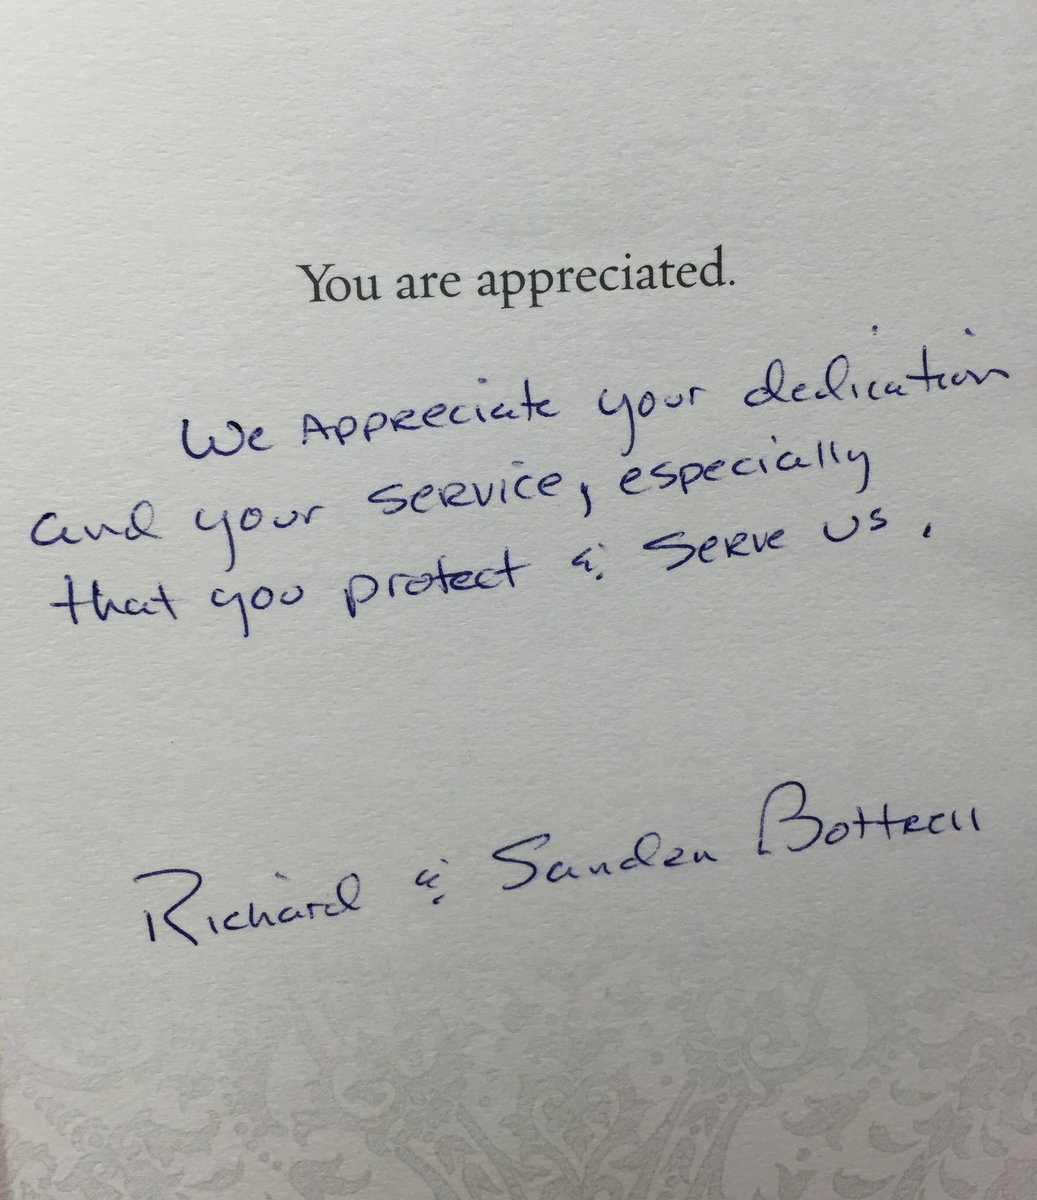 You are appreciated.
We Appreciate your dedication
and your service, especially
that you protect & serve us.
Richard & Sandra Bottrell